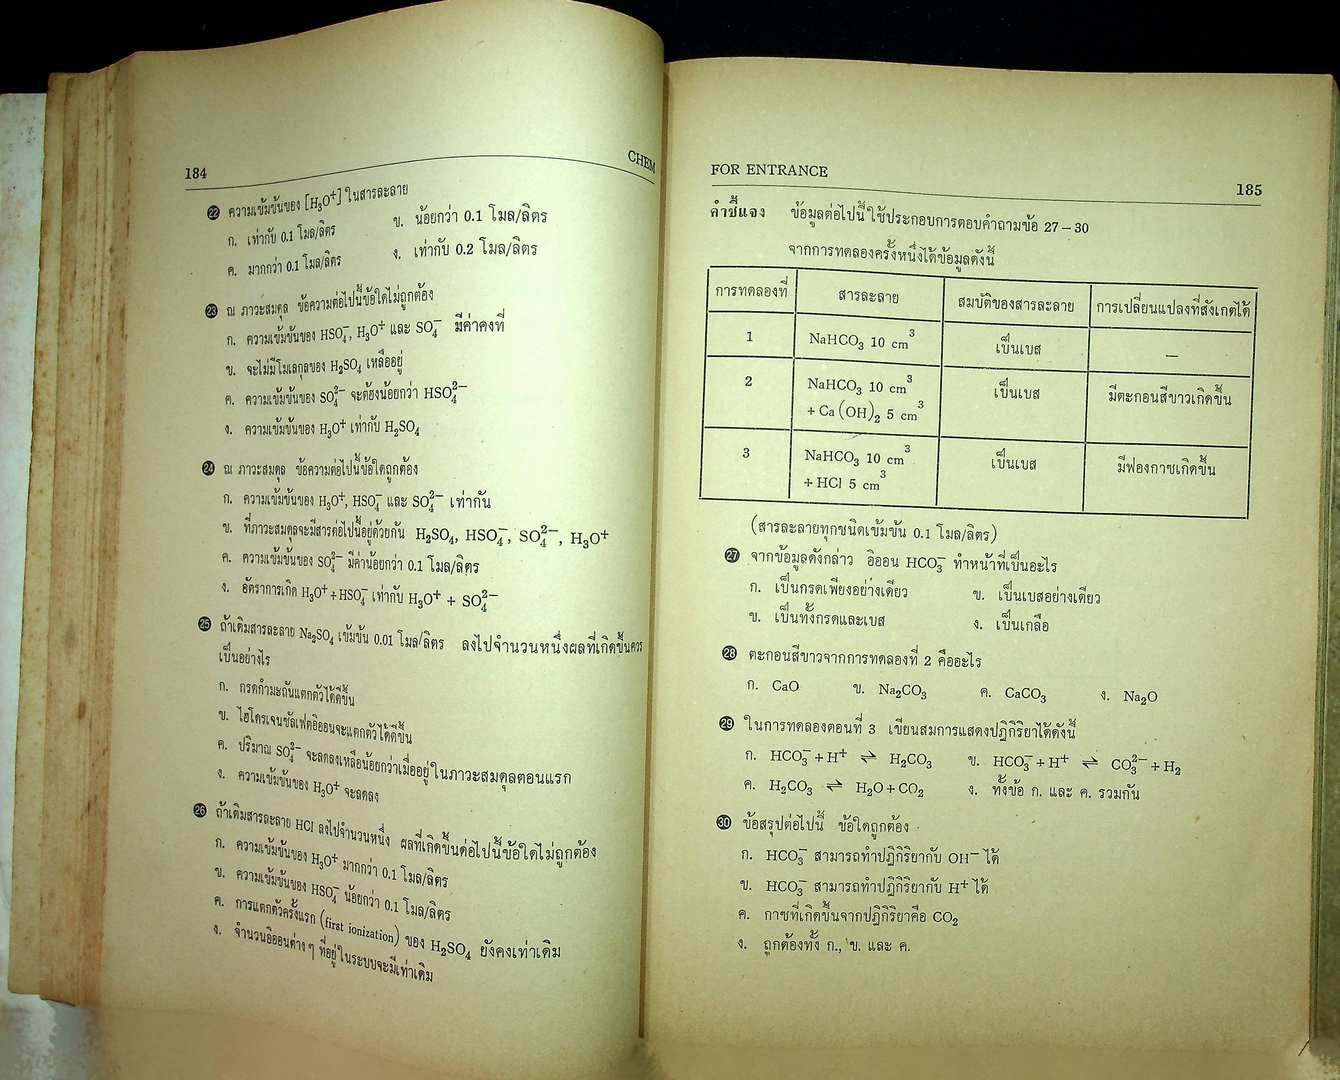 184
CHEM
22 ความเข้มข้นของ [H₃O⁺] ในสารละลาย
ก. เท่ากับ 0.1 โมล/ลิตร ข. น้อยกว่า 0.1 โมล/ลิตร
ค. มากกว่า 0.1 โมล/ลิตร ง. เท่ากับ 0.2 โมล/ลิตร
23 ณ ภาวะสมดุล ข้อความต่อไปนี้ข้อใดไม่ถูกต้อง
ก. ความเข้มข้นของ HSO₄⁻, H₃O⁺ และ SO₄⁻ มีค่าคงที่
ข. จะไม่มีโมเลกุลของ H₂SO₄ เหลืออยู่
ค. ความเข้มข้นของ SO₄²⁻ จะต้องน้อยกว่า HSO₄²⁻
ง. ความเข้มข้นของ H₃O⁺ เท่ากับ H₂SO₄
24 ณ ภาวะสมดุล ข้อความต่อไปนี้ข้อใดถูกต้อง
ก. ความเข้มข้นของ H₃O⁺, HSO₄⁻ และ SO₄²⁻ เท่ากัน
ข. ที่ภาวะสมดุลจะมีสารต่อไปนี้อยู่ด้วยกัน H₂SO₄, HSO₄⁻, SO₄²⁻, H₃O⁺
ค. ความเข้มข้นของ SO₄²⁻ มีค่าน้อยกว่า 0.1 โมล/ลิตร
ง. อัตราการเกิด H₃O⁺ + HSO₄⁻ เท่ากับ H₃O⁺ + SO₄²⁻
25 ถ้าเติมสารละลาย Na₂SO₄ เข้มข้น 0.01 โมล/ลิตร ลงไปจำนวนหนึ่งผลที่เกิดขึ้นควร
เป็นอย่างไร
ก. กรดกำมะถันแตกตัวได้ดีขึ้น
ข. ไฮโดรเจนซัลเฟตอิออนจะแตกตัวได้ดีขึ้น
ค. ปริมาณ SO₄²⁻ จะลดลงเหลือน้อยกว่าเมื่ออยู่ในภาวะสมดุลตอนแรก
ง. ความเข้มข้นของ H₃O⁺ จะลดลง
26 ถ้าเติมสารละลาย HCl ลงไปจำนวนหนึ่ง ผลที่เกิดขึ้นต่อไปนี้ข้อใดไม่ถูกต้อง
ก. ความเข้มข้นของ H₃O⁺ มากกว่า 0.1 โมล/ลิตร
ข. ความเข้มข้นของ HSO₄⁻ น้อยกว่า 0.1 โมล/ลิตร
ค. การแตกตัวครั้งแรก (first ionization) ของ H₂SO₄ ยังคงเท่าเดิม
ง. จำนวนอิออนต่าง ๆ ที่อยู่ในระบบจะมีเท่าเดิม
FOR ENTRANCE
185
คำชี้แจง ข้อมูลต่อไปนี้ใช้ประกอบการตอบคำถามข้อ 27 – 30
จากการทดลองครั้งหนึ่งได้ข้อมูลดังนี้
การทดลองที่ สารละลาย สมบัติของสารละลาย การเปลี่ยนแปลงที่สังเกตได้
1 NaHCO₃ 10 cm³ เป็นเบส –
2 NaHCO₃ 10 cm³ เป็นเบส มีตะกอนสีขาวเกิดขึ้น
+ Ca (OH)₂ 5 cm³
3 NaHCO₃ 10 cm³ เป็นเบส มีฟองกาซเกิดขึ้น
+ HCl 5 cm³
(สารละลายทุกชนิดเข้มข้น 0.1 โมล/ลิตร)
27 จากข้อมูลดังกล่าว อิออน HCO₃⁻ ทำหน้าที่เป็นอะไร
ก. เป็นกรดเพียงอย่างเดียว ข. เป็นเบสอย่างเดียว
ข. เป็นทั้งกรดและเบส ง. เป็นเกลือ
28 ตะกอนสีขาวจากการทดลองที่ 2 คืออะไร
ก. CaO ข. Na₂CO₃ ค. CaCO₃ ง. Na₂O
29 ในการทดลองตอนที่ 3 เขียนสมการแสดงปฏิกิริยาได้ดังนี้
ก. HCO₃⁻ + H⁺ ⇌ H₂CO₃ ข. HCO₃⁻ + H⁺ ⇌ CO₃²⁻ + H₂
ค. H₂CO₃ ⇌ H₂O + CO₂ ง. ทั้งข้อ ก. และ ค. รวมกัน
30 ข้อสรุปต่อไปนี้ ข้อใดถูกต้อง
ก. HCO₃⁻ สามารถทำปฏิกิริยากับ OH⁻ ได้
ข. HCO₃⁻ สามารถทำปฏิกิริยากับ H⁺ ได้
ค. กาซที่เกิดขึ้นจากปฏิกิริยาคือ CO₂
ง. ถูกต้องทั้ง ก., ข. และ ค.